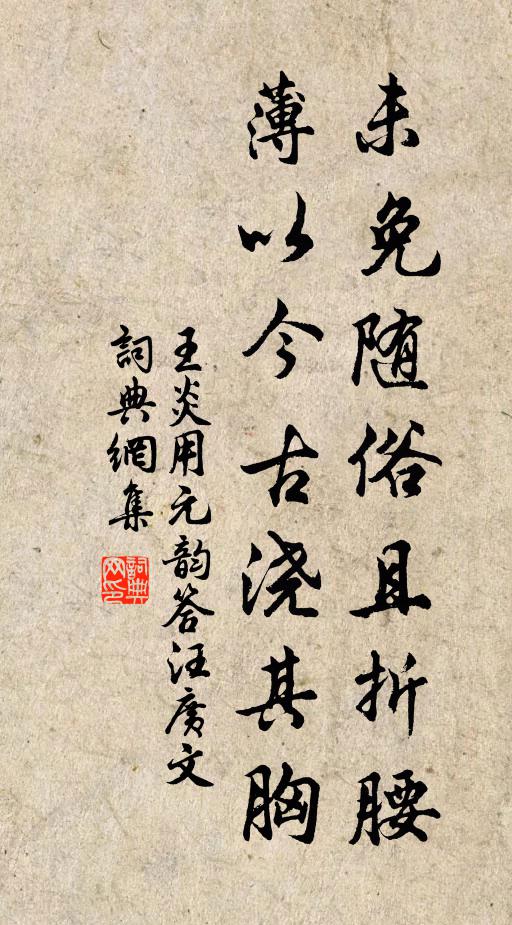 未免随俗且折腰
薄以今古浇其胸
王炎用元韵答汪廣文
詞典網集
詞典网印